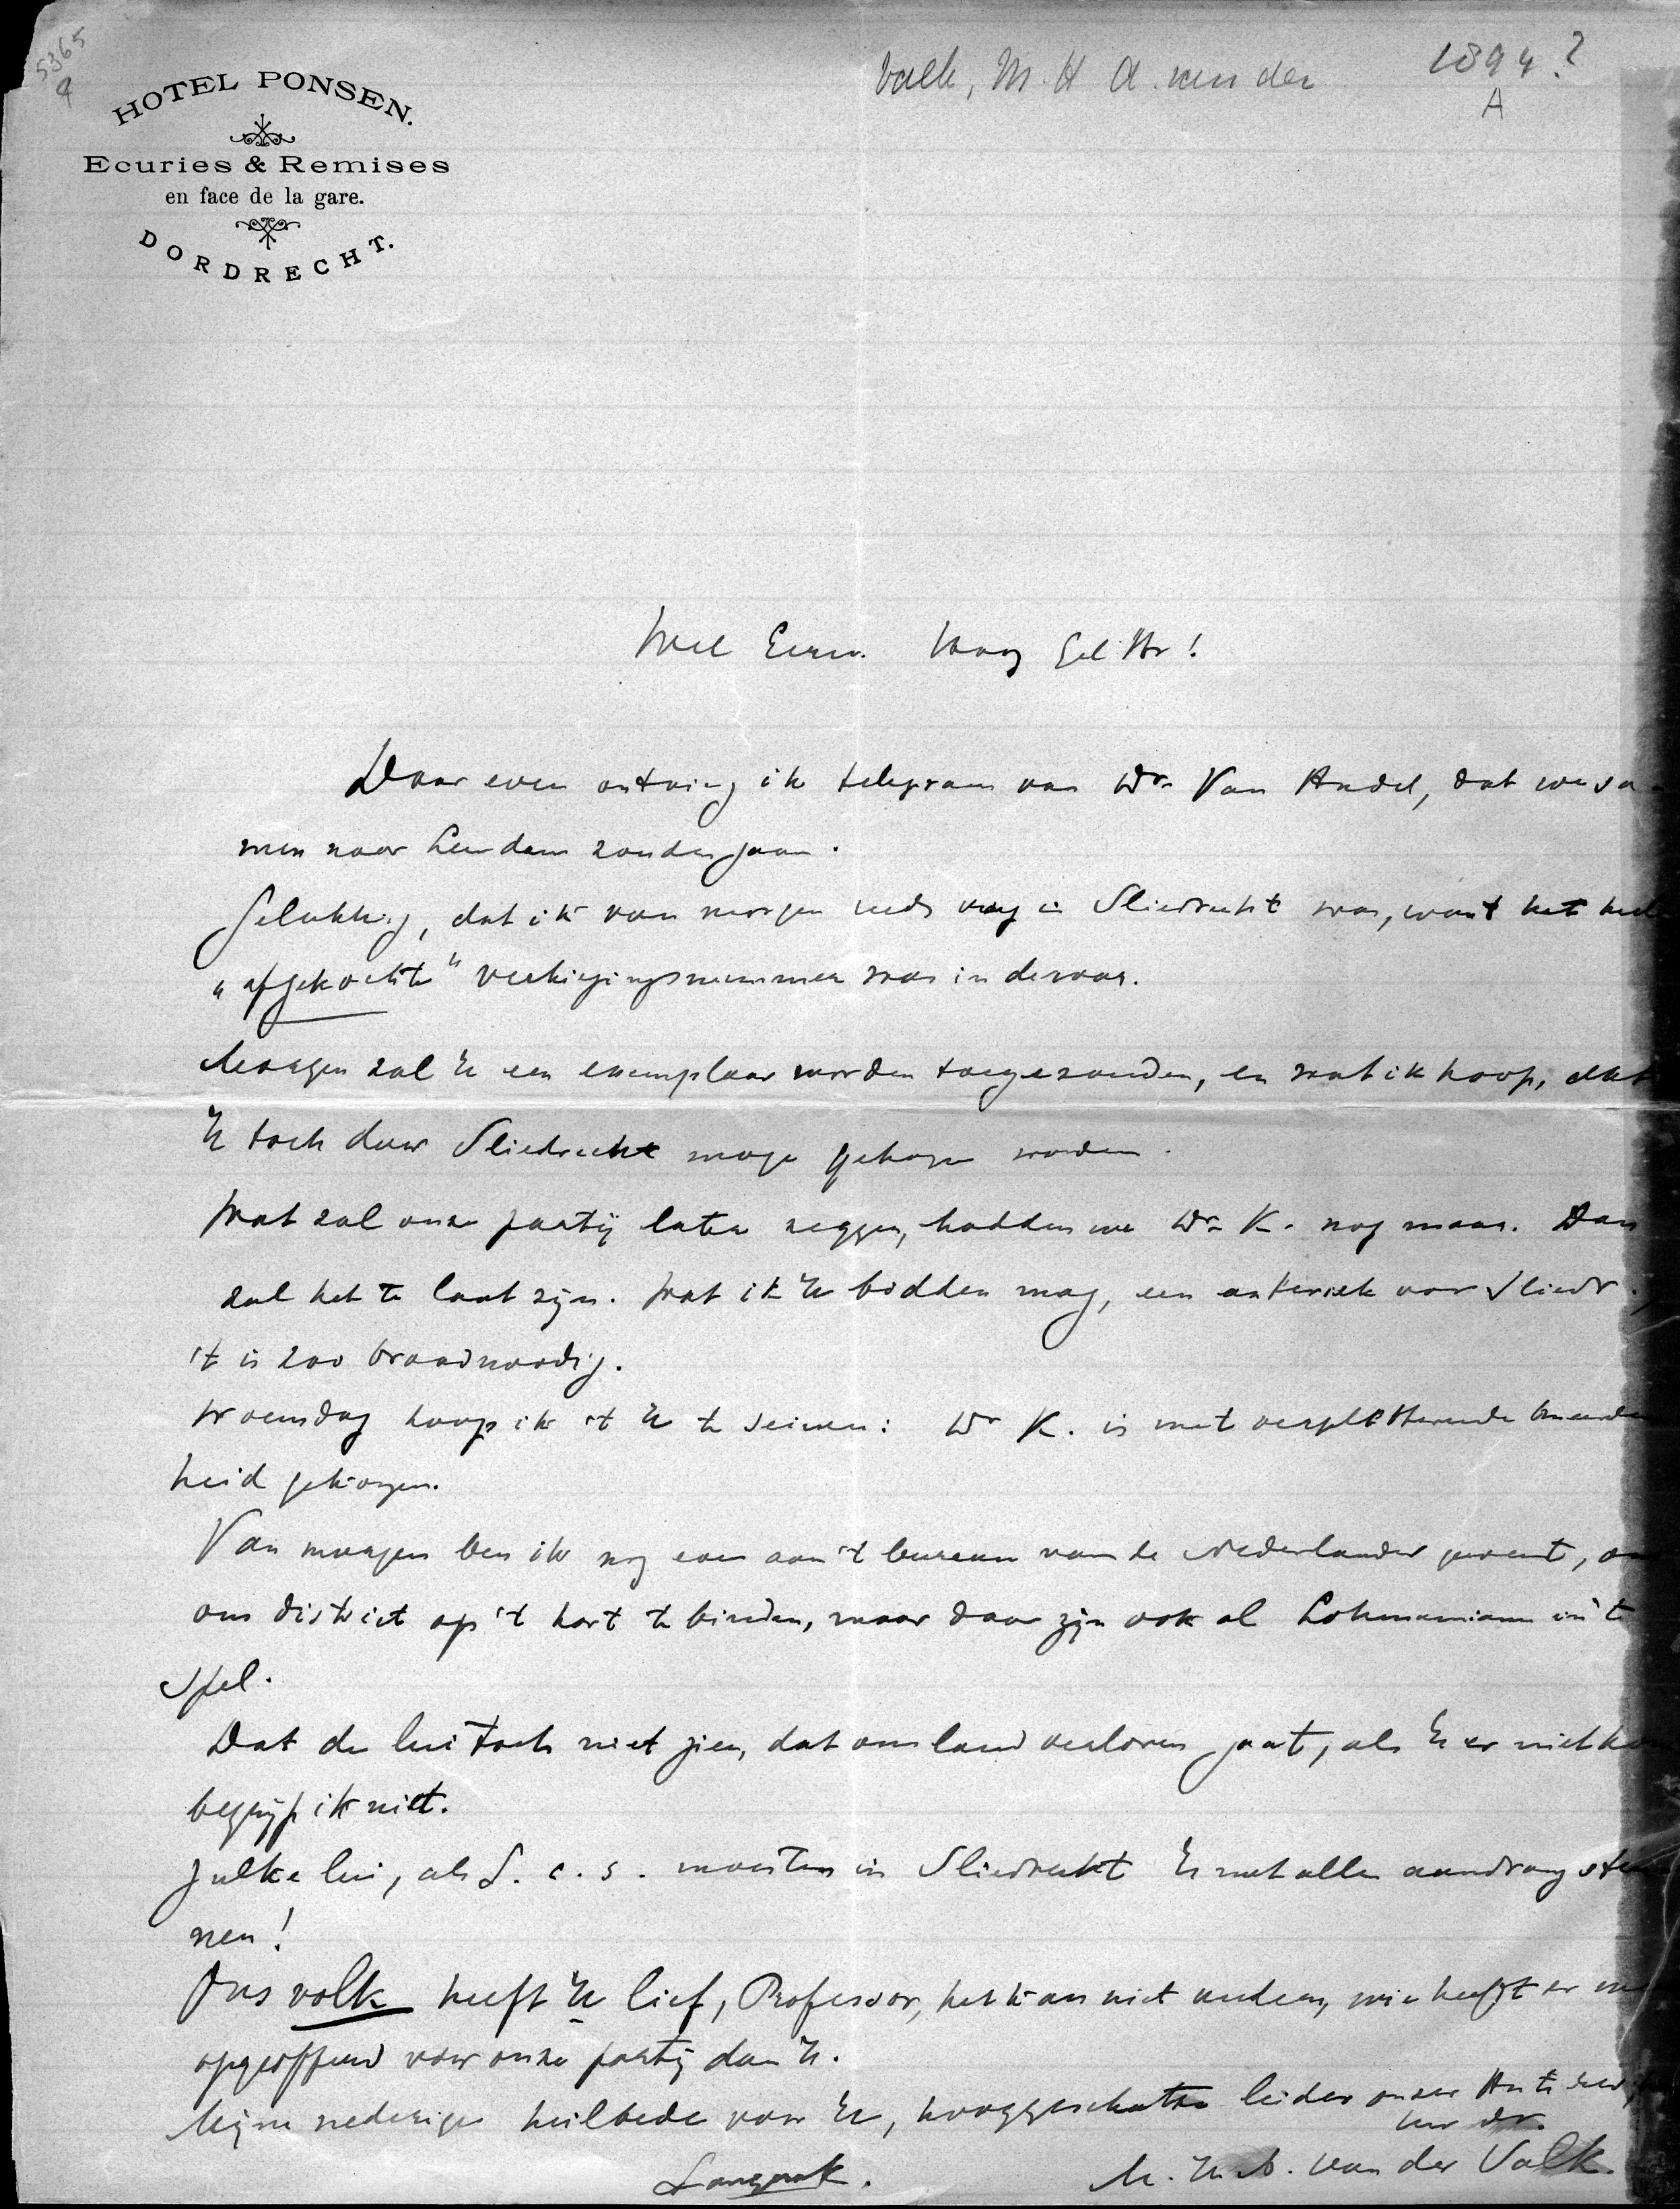 5365
9
HOTEL PONSEN.
Ecuries & Remises
en face de la gare.
DORDRECHT.
Valk, M. H. A. van der
1894?
A
Wel Eerw. Hoog Gel Hr!
Daar even ontving ik telegram van Dr. Van Andel, dat we sa-
men naar Leerdam zouden gaan.
Gelukkig, dat ik van morgen reeds vroeg in Sliedrecht was, want het heel
"afgekochte" verkiezingsnummer was in de war.
Morgen zal U een exemplaar worden toegezonden, en wat ik hoop, dat
U toch door Sliedrecht moge gekozen worden.
Wat zal onze partij later zeggen, hadden we Dr. K. nog maar. Dan
zal het te laat zijn. Wat ik U bidden mag, een asterisk voor Sliedr.,
't is zoo broodnoodig.
Woensdag hoop ik 't U te seinen: Dr K. is met verpletterende meerder
heid gekozen.
Van morgen ben ik nog even aan 't bureau van de Nederlander geweest, om
ons district op 't hart te binden, maar daar zijn ook al Lohmanianen in 't
spel.
Dat de lui toch niet zien, dat ons land verloren gaat, als U er niet ko
begrijp ik niet.
Zulke lui, als L. c. s. moesten in Sliedrecht U met allen aandrang steu
nen!
Ons volk heeft U lief, Professor, het kan niet anders, wie heeft er me
opgeofferd voor onze partij dan U.
Mijne nederige heilbede voor U, hooggeschatte leider onzer Antirev.
uw dr.
M. H. A. van der Valk.
Langerak.